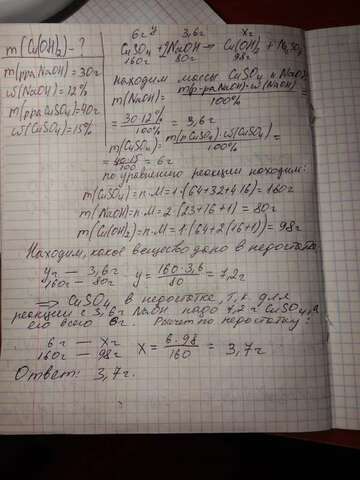 m(Cu(OH)₂) - ?
m(рра NaOH) = 30г
w(NaOH) = 12%
m(рра CuSO₄) = 40г
w(CuSO₄) = 15%
6г 3,6г xг
CuSO₄ + 2NaOH → Cu(OH)₂ + Na₂SO₄
160г 80г 98г
Находим массы CuSO₄ и NaOH
m(NaOH) = m(р-ра NaOH)·w(NaOH) / 100% =
= 30·12% / 100% = 3,6г
m(CuSO₄) = m(р CuSO₄)·w(CuSO₄) / 100% =
= 40·15 / 100 = 6г
по уравнению реакции находим:
m(CuSO₄) = n·M = 1·(64+32+4·16) = 160г
m(NaOH) = n·M = 2·(23+16+1) = 80г
m(Cu(OH)₂) = n·M = 1·(64+2(16+1)) = 98г
Находим, какое вещество дано в недостатке
yг — 3,6г
160г — 80г
y = 160·3,6 / 80 = 7,2г
⇒ CuSO₄ в недостатке, т.к. для
реакции с 3,6г NaOH надо 7,2г CuSO₄, а
его всего 6г. Расчет по недостатку:
6г — xг
160г — 98г
X = 6·98 / 160 = 3,7г
Ответ: 3,7г.